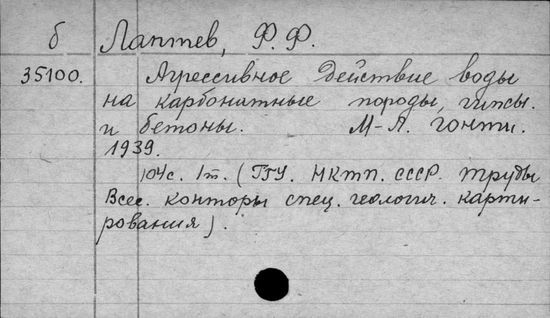 б Лаптев, Ф. Ф.
35100. Агрессивное действие воды
на карбонатные породы, гипсы
и бетоны. М-Л. ГОНТИ.
1939.
104с. 1т. (ГГУ. НКТП. СССР. Труды
Всес. конторы спец. геологич. карти-
рования).